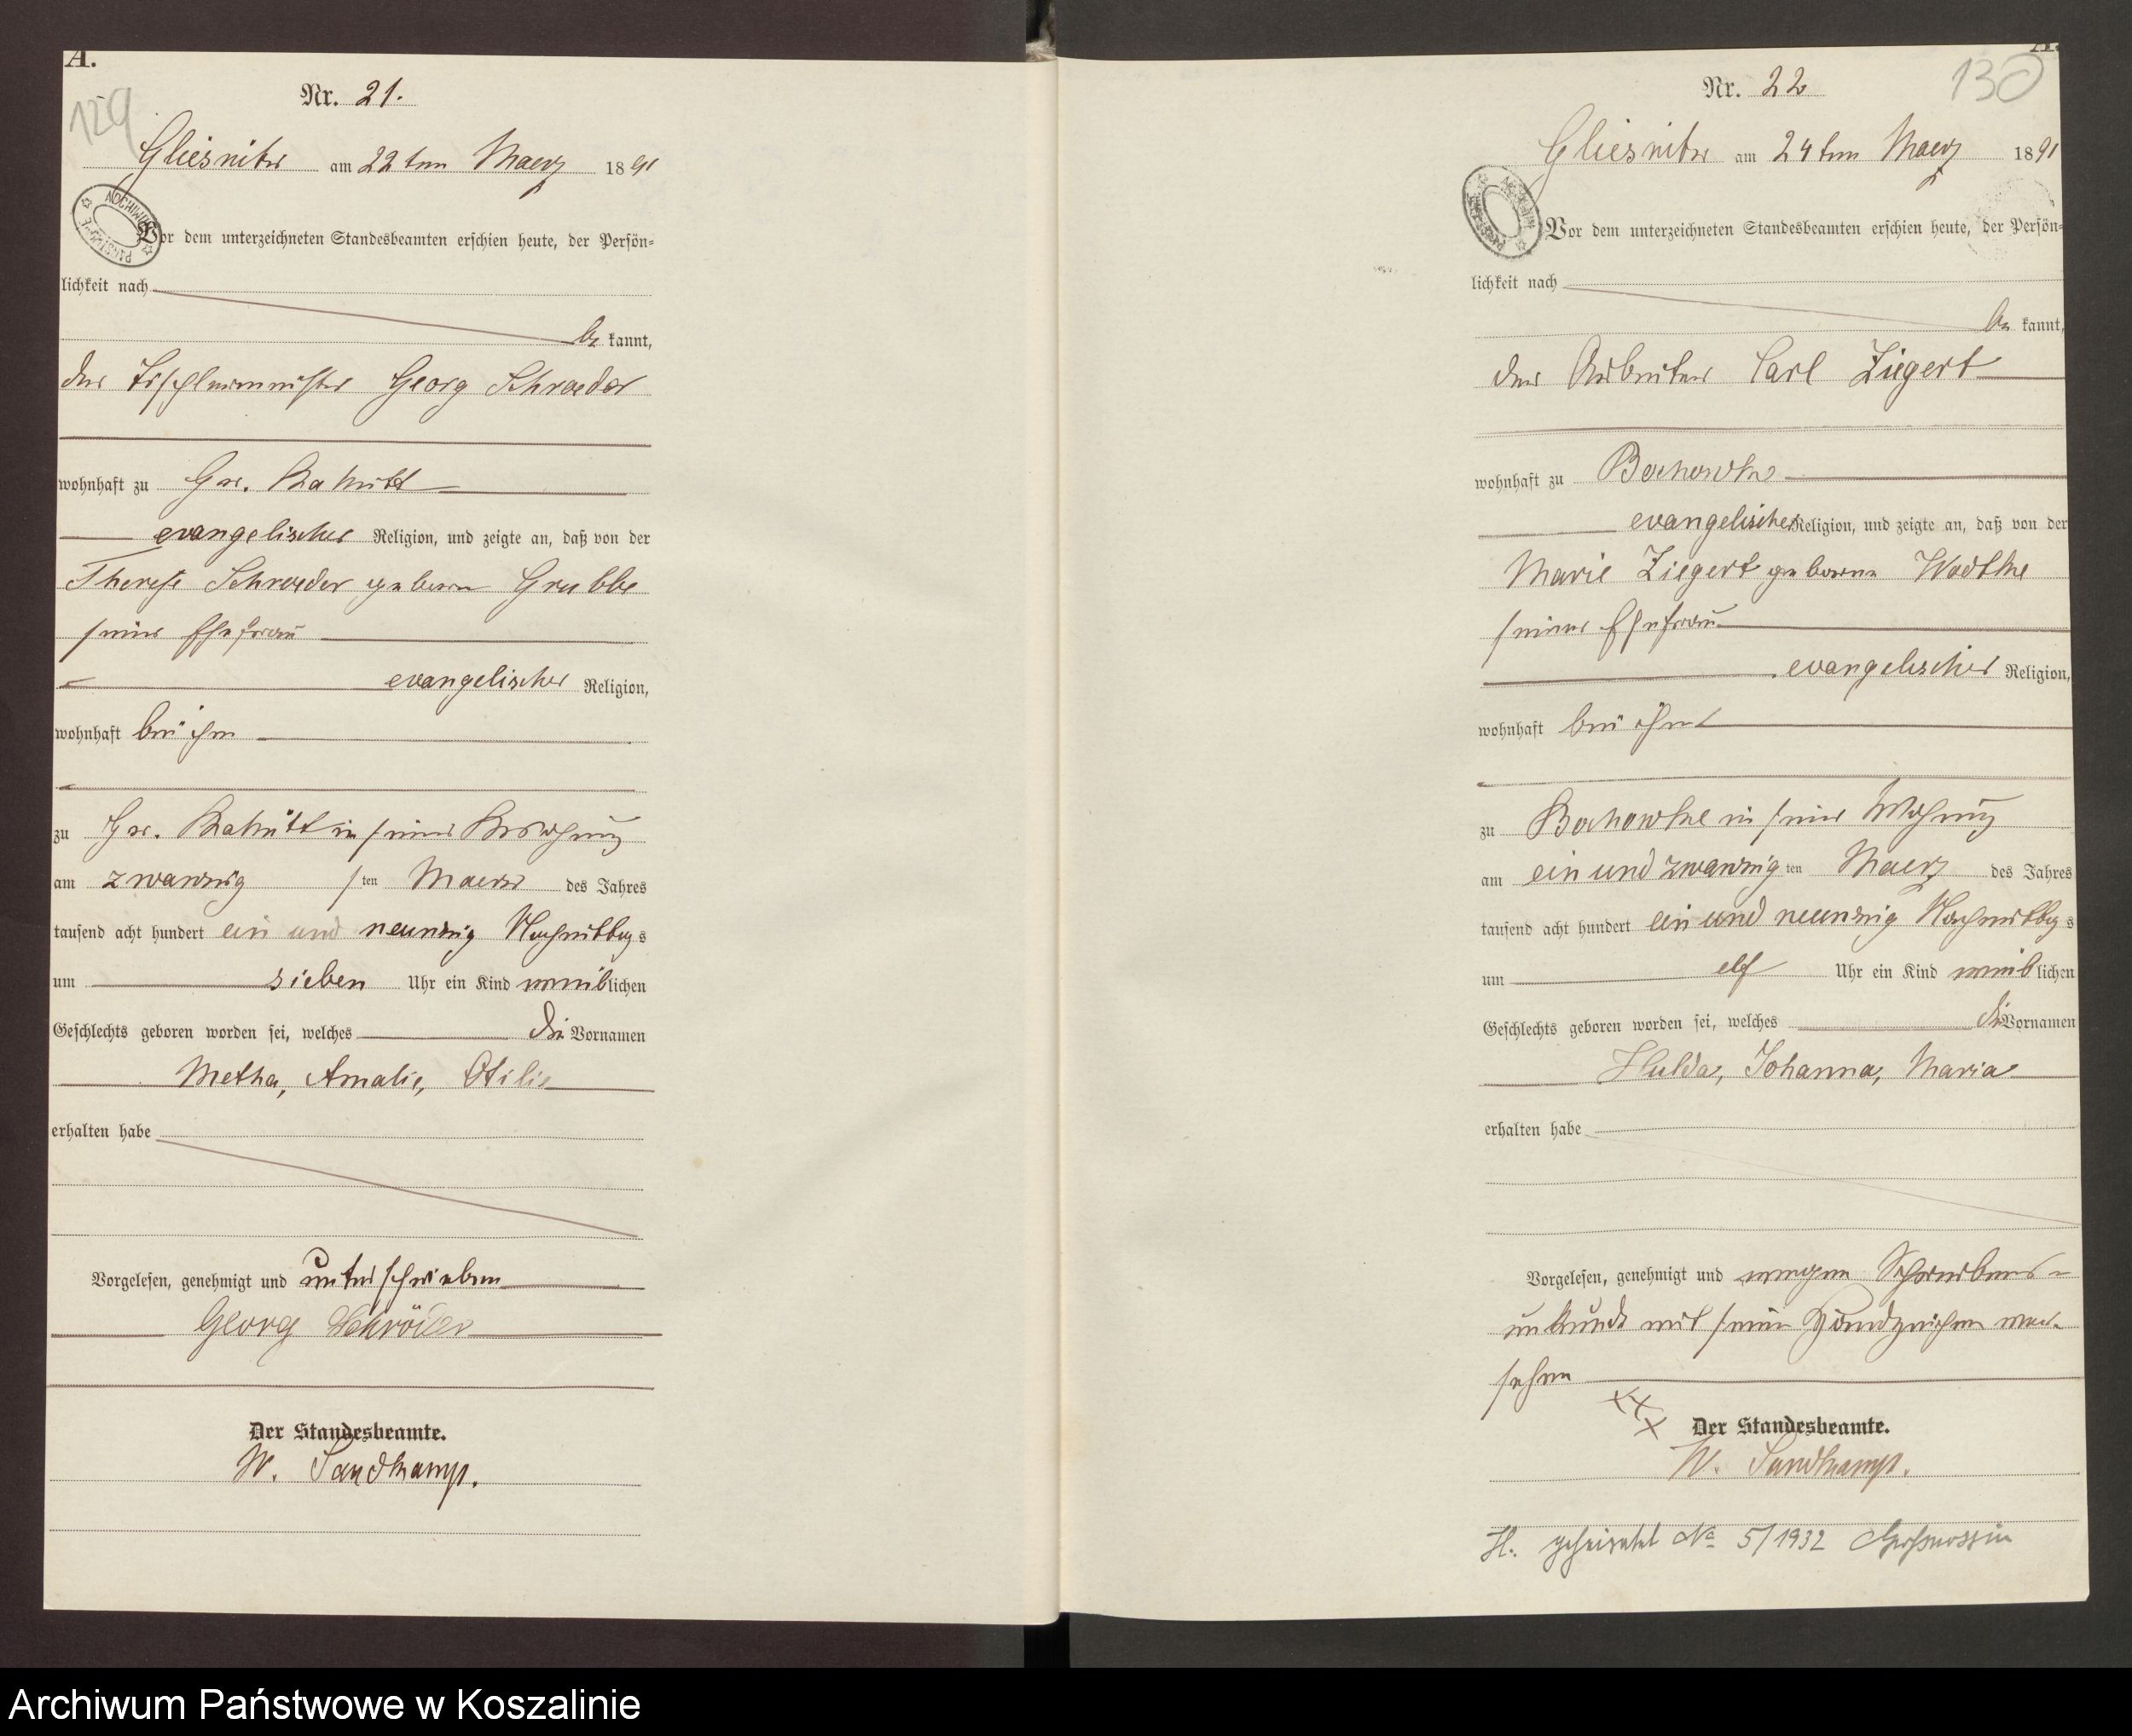 A.
129
Nr. 21.
Gliesnitz am 22ten Maerz 1891
Vor dem unterzeichneten Standesbeamten erschien heute, der Persön-
lichkeit nach
be kannt,
der Tischlermeister Georg Schroeder
wohnhaft zu Gr.
evangelischer Religion, und zeigte an, daß von der
Therese Schroeder geborene Grubbe
seiner Ehefrau
evangelischer Religion,
wohnhaft bei ihm
zu Gr. in seiner
am zwanzig s ten Maerz des Jahres
tausend acht hundert ein und neunzig Nachmittags
um sieben Uhr ein Kind weiblichen
Geschlechts geboren worden sei, welches die Vornamen
Metha, Amalie, Otilie
erhalten habe
Vorgelesen, genehmigt und unterschrieben
Georg Schröder
Der Standesbeamte.
W. Sandkamp.
A.
130
Nr. 22
Gliesnitz am 24ten Maerz 1891
Vor dem unterzeichneten Standesbeamten erschien heute, der Persön-
lichkeit nach
be kannt,
der Arbeiter Carl Ziegert
wohnhaft zu Bochowke
evangelischer Religion, und zeigte an, daß von der
Marie Ziegert geborene Wodtke
seiner Ehefrau
evangelischer Religion,
wohnhaft bei ihm
zu Bochowke in seiner Wohnung
am ein und zwanzig ten Maerz des Jahres
tausend acht hundert ein und neunzig Nachmittags
um elf Uhr ein Kind weiblichen
Geschlechts geboren worden sei, welches die Vornamen
Hulda, Johanna, Maria
erhalten habe
Vorgelesen, genehmigt und wegen Schreibens-
unkunde mit seinem Handzeichen ver-
sehen
XXX
Der Standesbeamte.
W. Sandkamp.
H. geheiratet No 5/1932 Großnossin
Archiwum Państwowe w Koszalinie